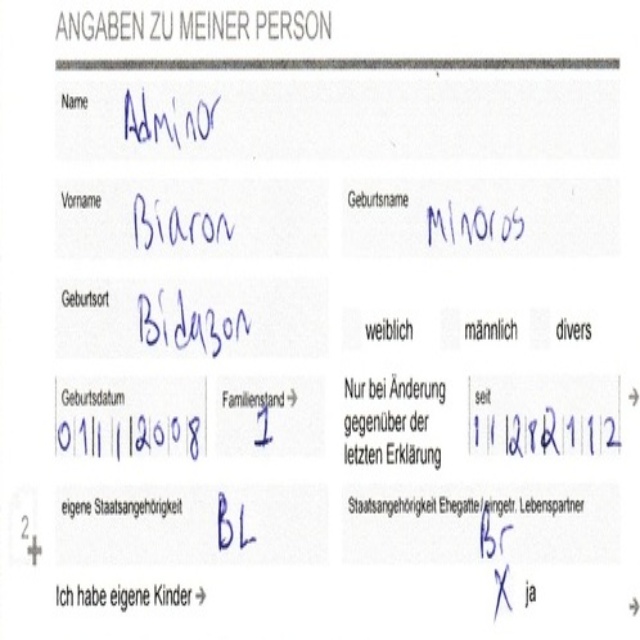 ANGABEN ZU MEINER PERSON
Name Adminor
Vorname Biaron
Geburtsname Minoros
Geburtsort Bidazon
weiblich männlich divers
Geburtsdatum 01112008
Familienstand → 1
Nur bei Änderung
gegenüber der
letzten Erklärung
seit →
eigene Staatsangehörigkeit BL
Staatsangehörigkeit Ehegatte/eingetr. Lebenspartner Br
2
Ich habe eigene Kinder → X ja →